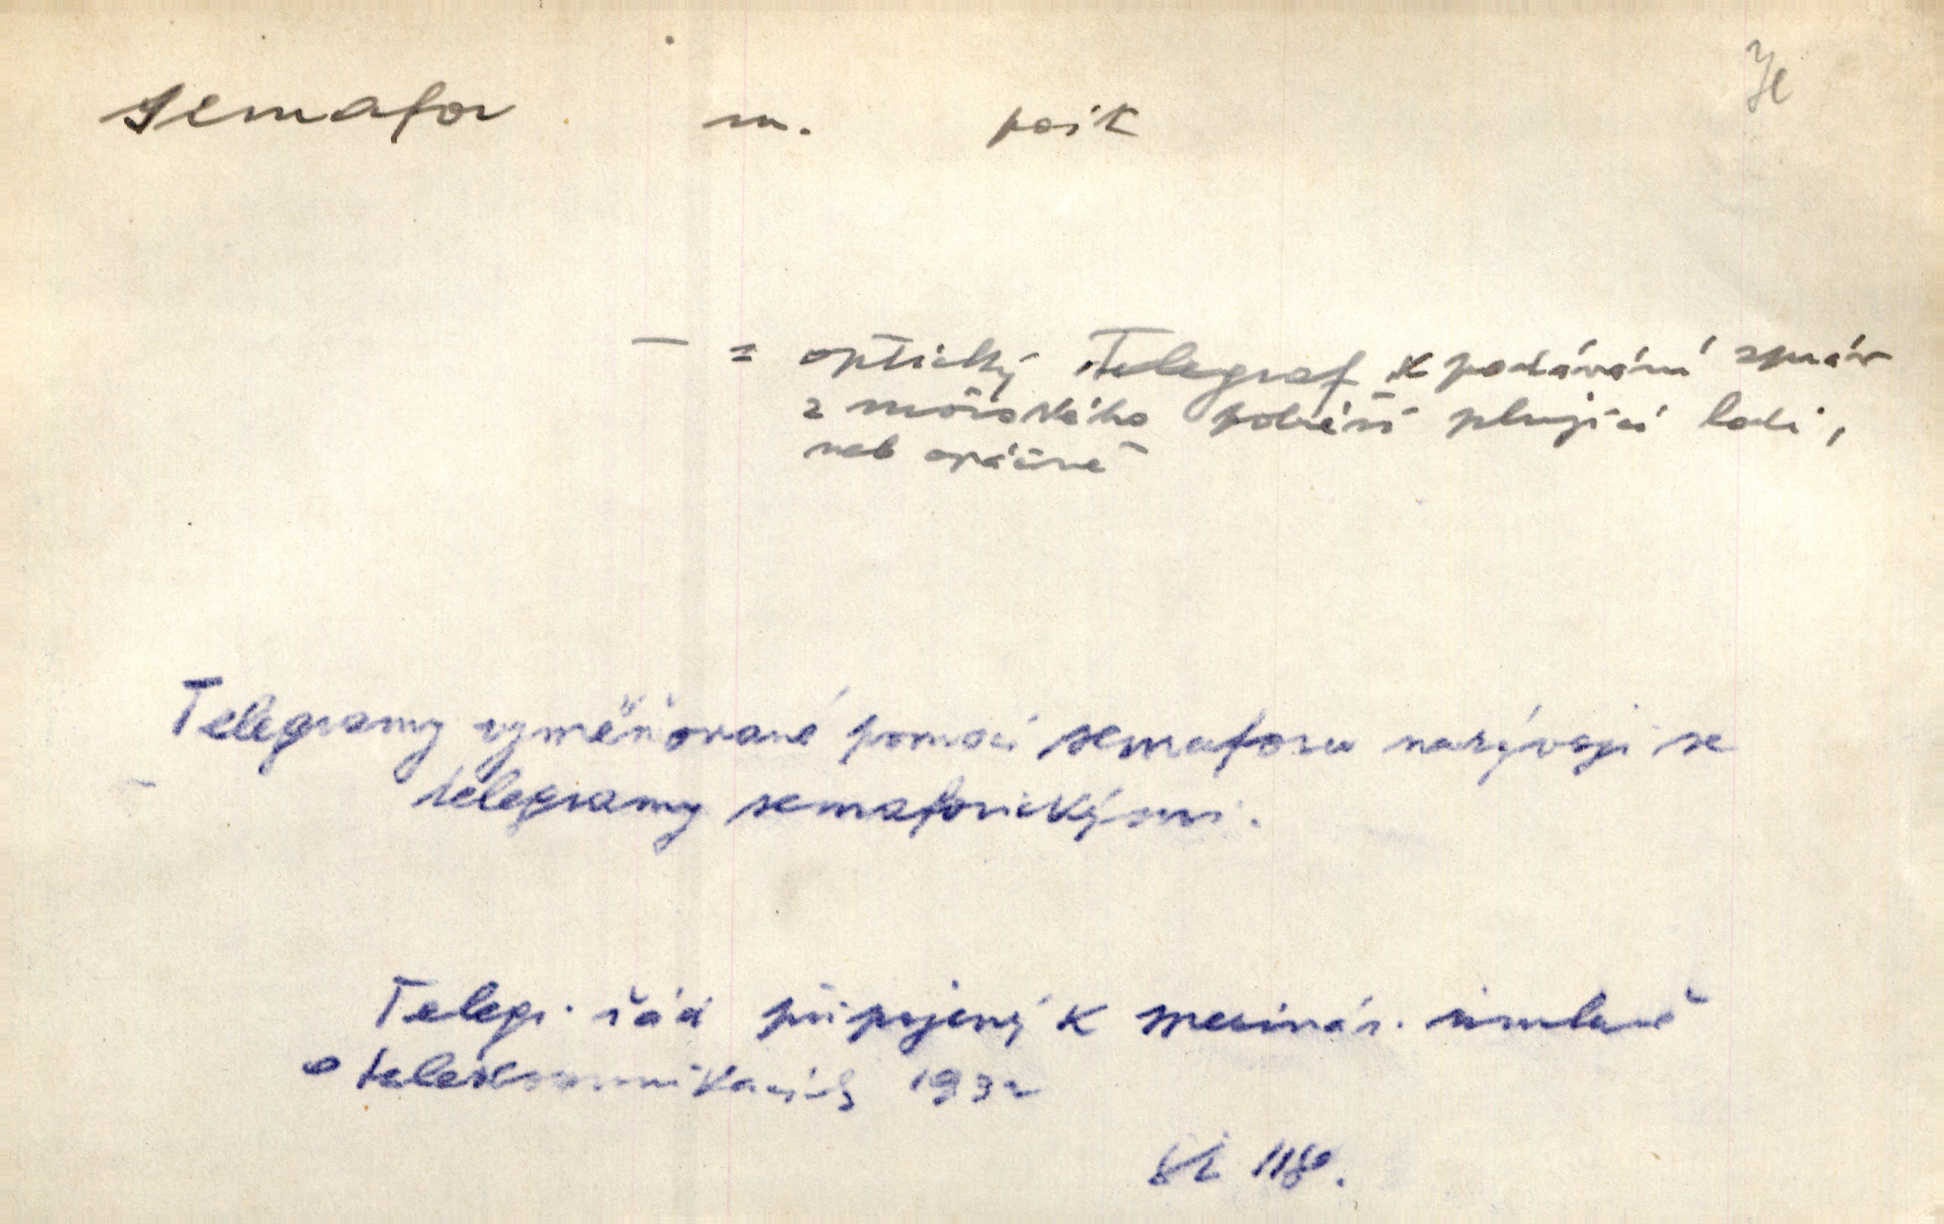 semafor m. pošt
— = optický telegraf k podávání zpráv
z mořského pobřeží plující lodi,
neb opáčně
Telegramy vyměňované pomocí semaforu nazývají se
telegramy semaforickými.
Telegr. řád připojený k mezinár. úmluvě
o telekomunikacích 1932